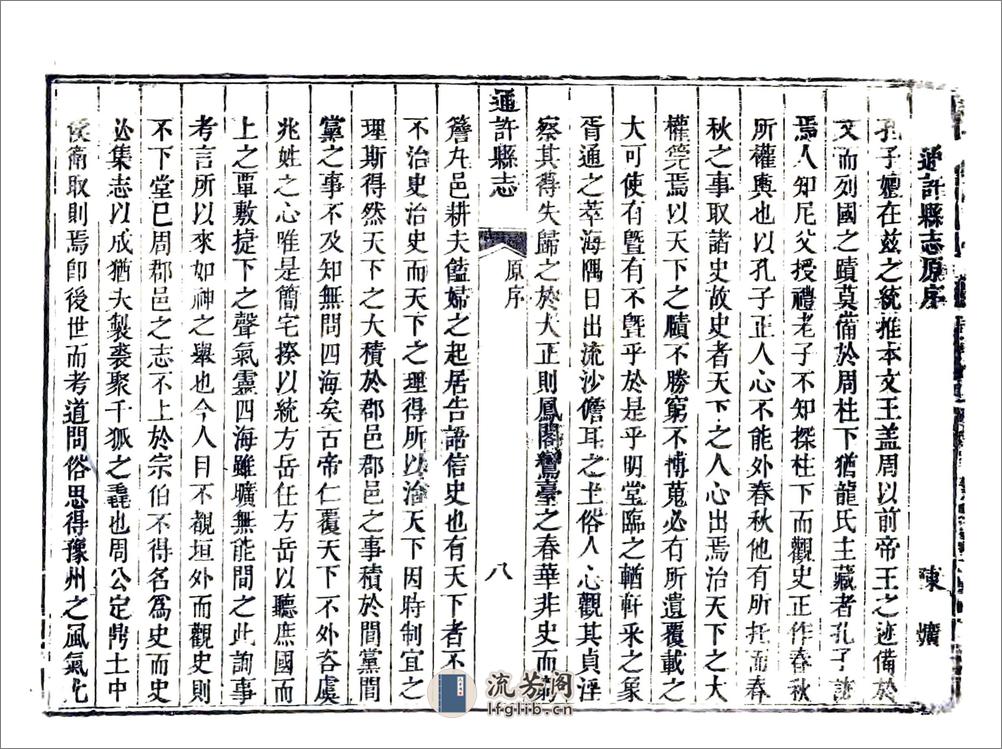 通許縣志原序　陳爌
孔子嬗在茲之統推本文王盖周以前帝王之迹備於
文而列國之蹟莫備於周柱下猶龍氏主藏者孔子
焉人知尼父授禮老子不知探柱下而觀史正作春秋
所權輿也以孔子正人心不能外春秋他有所托而春
秋之事取諸史故史者天下之人心出焉治天下之大
權筦焉以天下之賾不勝窮不博蒐必有所遺覆載之
大可使有曁有不曁乎於是乎明堂臨之輶軒采之象
胥通之萃海隅日出流沙儋耳之土俗人心觀其貞淫
察其得失歸之於大正則鳳閣鸞臺之春華非史而
通許縣志　原序　八
簷九邑耕夫饁婦之起居告語信史也有天下者不
不治史治史而天下之理得所以治天下因時制宜之
理斯得然天下之大積於郡邑郡邑之事積於閭黨閭
黨之事不及知無問四海矣古帝仁覆天下不外咨虞
兆姓之心唯是簡宅揆以統方岳任方岳以聽庶國而
上之覃敷捷下之聲氣靈四海雖曠無能間之此詢事
考言所以來如神之舉也今人目不覩垣外而觀史則
不下堂巳周郡邑之志不上於宗伯不得名爲史而史
必集志以成猶大製裘聚千狐之毳也周公定鼎土中
侯衛取則焉卽後世而考道問俗思得豫州之風氣化
流芳阁
lfglib.cn